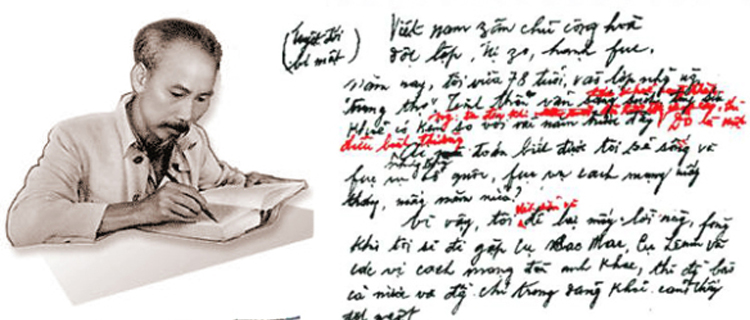 (tuyệt đối
bí mật)
Việt nam zân chủ cộng hoà
độc lập, tự zo, hạnh fúc.
Năm nay, tôi vừa 78 tuổi, vào lớp những ng
"trung thọ". Tinh thần vẫn
kém so với vài năm trước đây. Đó là một
điều bình thường
Ai mà đoán biết được tôi sẽ sống và
fục vụ tổ quốc, fục vụ cách mạng mấy
tháng, mấy năm nữa?
Vì vậy, tôi để lại mấy lời này, fòng
khi tôi sẽ đi gặp cụ Các Mác, Cụ Lênin và
các vị cách mạng đàn anh khác, thì đ bào
cả nước và đ chí trong đảng khỏi cảm thấy
đột ngột